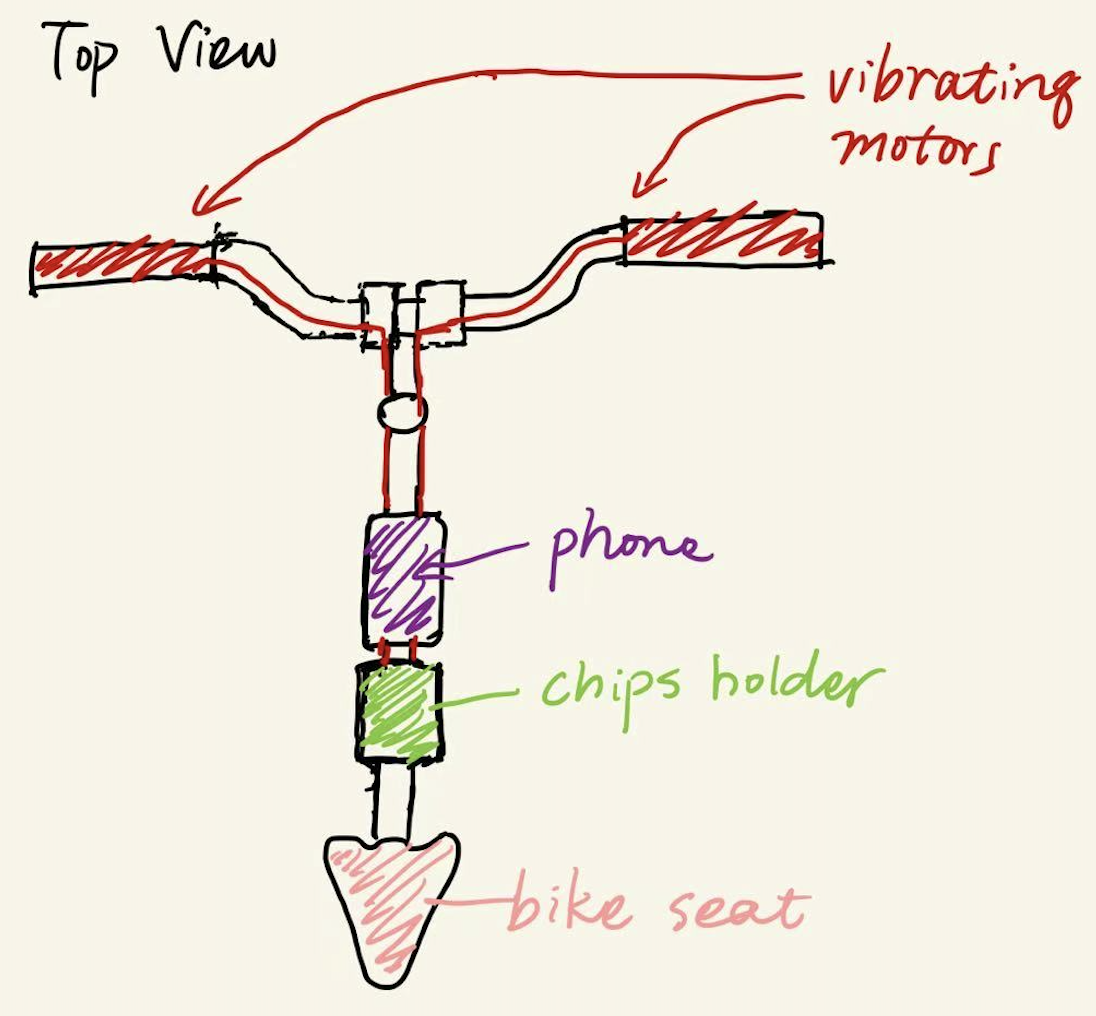 Top View
vibrating
motors
phone
chips holder
bike seat